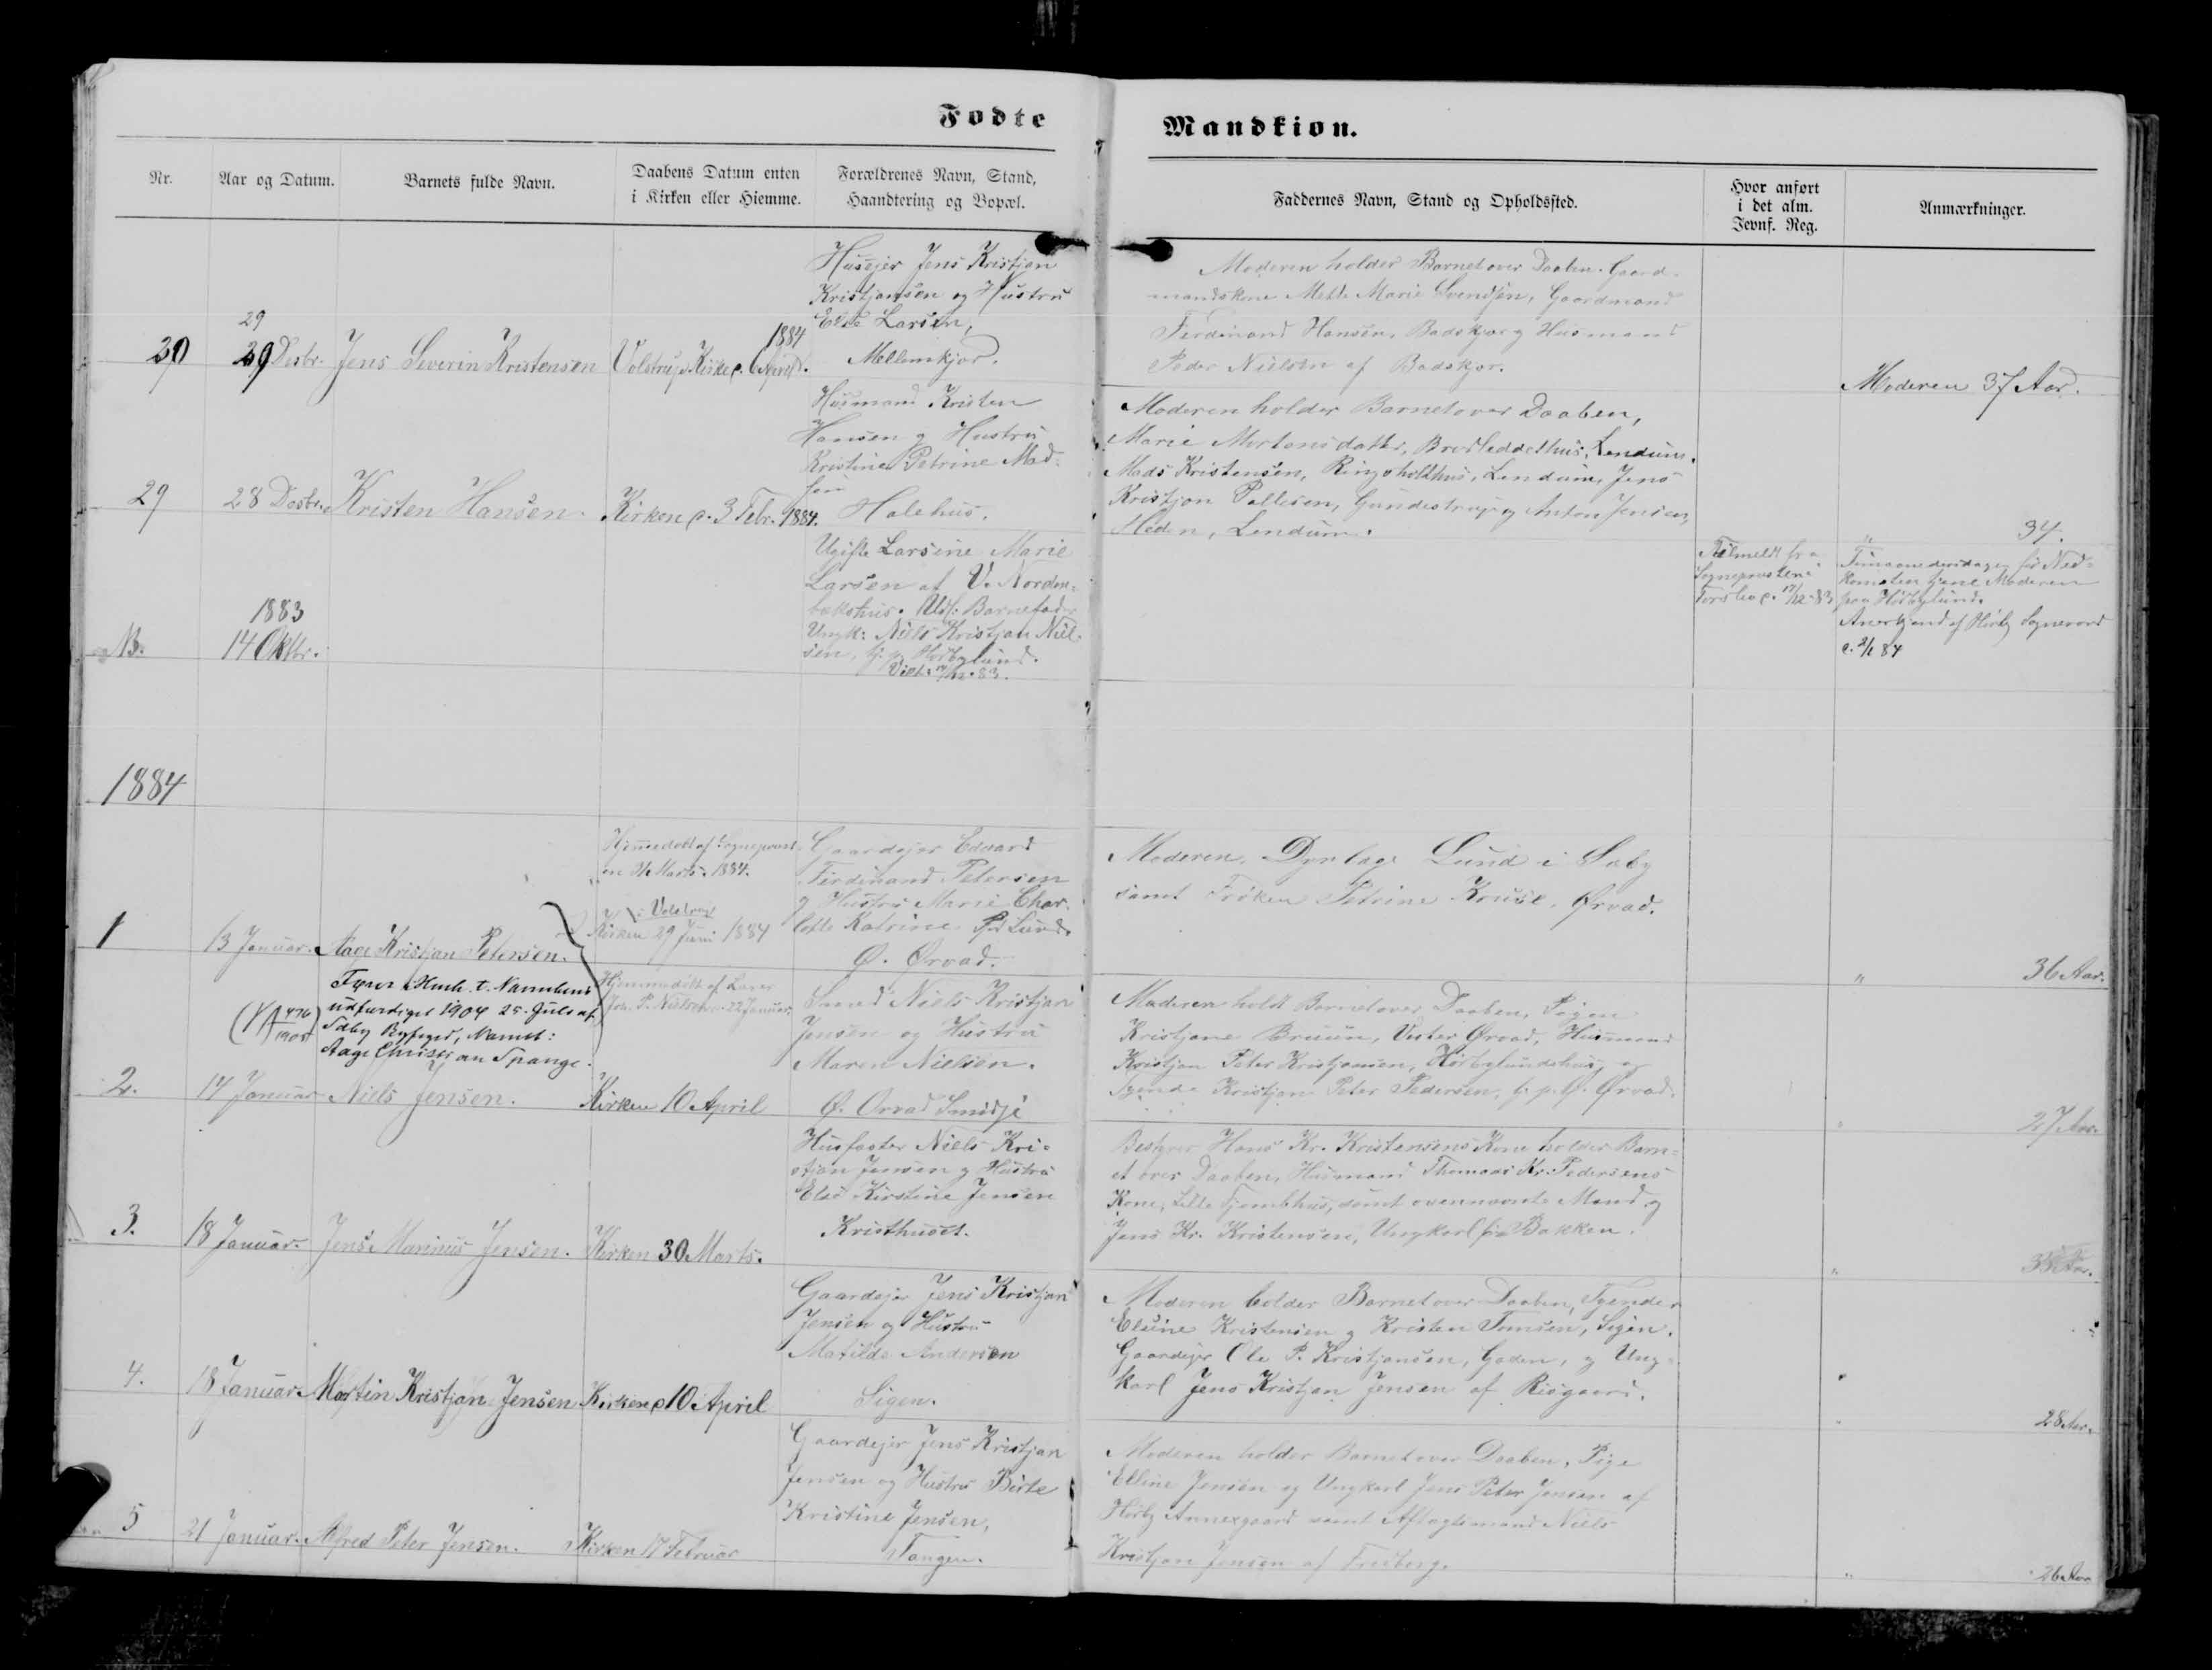 Fødte
Mandkiøn.
Nr.
Aar og Datum.
Barnets fulde Navn.
Daabens Datum enten
i Kirken eller Hiemme.
Forældrenes Navn, Stand,
Haandtering og Bopæl.
Faddernes Navn, Stand og Opholdssted.
Hvor anført
i det alm.
Jevnf. Reg.
Anmærkninger.
30
29
29 Desbr.
Jens Severin Kristensen
1884
Volstrup Kirke d. 6 April.
Husejer Jens Kristjan
Kristjansen og Hustru
Else Larsen,
Mellemkjær.
Moderen holder Barnet over Daaben. Gaard-
mandskone Mette Marie Svendsen, Gaardmand
Ferdinand Hansen, Badskjær og Husmand
Peder Nielsen af Badskjær.
Moderen 37 Aar.
29
28 Desbr.
Kristen Hansen.
Kirken d. 3 Febr. 1884.
Husmand Kristen
Hansen og Hustru
Kristine Petrine Mad-
sen
Halehus.
Moderen holder Barnet over Daaben,
Marie Mortensdatter, Lendum.
Mads Kristensen, Ringsholthus, Lendum, Jens
Kristjan Pallesen, Gundestrup og Anton Jensen,
Heden, Lendum.
" 34.
NB.
1883
14 Oktbr.
Ugifte Larsine Marie
Larsen af V. Norden-
bækshus. Udl: Barnefader
Ungk: Niels Kristjan Niel-
sen, tj. p. Hørbylund.
Tilmeldt fra
Sognepræsten i
Torslev d. 17/12 83
Timaanedersdagen før Ned-
komsten tjente Moderen
paa Hørbylund.
Anerkjend af Hørby Sogneraad
d. 2/1 84
1884
1
13 Januar.
Aage Kristjan Petersen.
Hjemmedøbt af Sognepræst-
en Marts 1884.
Volstrup
Kirken 29 Juni 1884
Gaardejer Edvard
Ferdinand Petersen
og Hustru Marie Char-
lotte Katrine Lund.
Ø. Ørvad.
Moderen, Dyrlæge Lund i Sæby
samt Frøken Petrine Kruse, Ørvad.
" 36 Aar.
udfærdiget 1904 25. Juli af
Sæby Byfoged, Navnet:
Aage Christian Spange.
476
1905
2.
14 Januar
Niels Jensen.
Hjemmedøbt af Lærer
P. Nielsen d. 22 Januar.
Kirken 10 April
Smed Niels Kristjan
Jensen og Hustru
Maren Nielsen.
Ø. Ørvad Smidje
Moderen holdt Barnet over Daaben, Pigen
Kristjane Bruun, Vester Ørvad, Husmand
Kristjan Peter Kristjansen, Hørbylundshus, og
Tyende Kristjan Peter Pedersen, tj. p. Ø. Ørvad.
" 27 Aar.
3.
18 Januar.
Jens Marinus Jensen.
Kirken 30 Marts.
Husfæster Niels Kri-
stjan Jensen og Hustru
Else Kirstine Jensen
Kristhuset.
Bestyrer Hans Kr. Kristensens Kone holder Barn-
et over Daaben, Husmand Thomas Kr. Pedersens
Kone, Lille samt ovennævnte Mand og
Jens Kr. Kristensen, Ungkarl fra Bakken.
"
4.
18 Januar.
Martin Kristjan Jensen
Kirken d. 10 April
Gaardejer Jens Kristjan
Jensen og Hustru
Matilde Andersen
Sigen.
Moderen holder Barnet over Daaben, Tyende
Elsine Kristensen og Kristen Tomsen, Sigen,
Gaardejer Ole P. Kristjansen, Gaden, og Ung-
karl Jens Kristjan Jensen af Risgaard.
" 28 Aar.
5
21 Januar.
Alfred Peter Jensen.
Kirken 17 Februar
Gaardejer Jens Kristjan
Jensen og Hustru Birte
Kristine Jensen,
Tangen.
Moderen holder Barnet over Daaben, Pige
Elline Jensen og Ungkarl Jens Peter Jensen af
Hørby Annexgaard samt Aftægtsmand Niels
Kristjan Jensen af Fredberg.
" 26 Aar